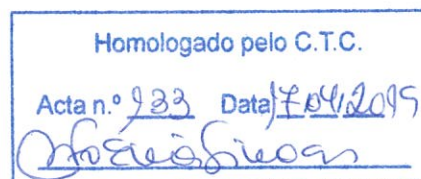 Homologado pelo C.T.C.
Acta n.º 933 Data 17/04/2019